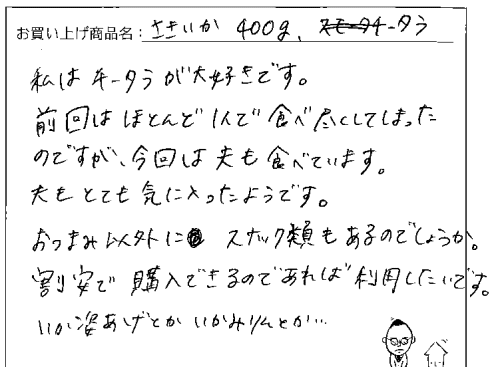 お買い上げ商品名：さきいか 400g、スモークチータラ
私はチータラが大好きです。
前回はほとんど1人で食べ尽くしてしまった
のですが、今回は夫も食べています。
夫もとても気に入ったようです。
おつまみ以外に スナック類もあるのでしょうか。
割安で購入できるのであれば利用したいです。
いか姿あげとかいかみりんとか…